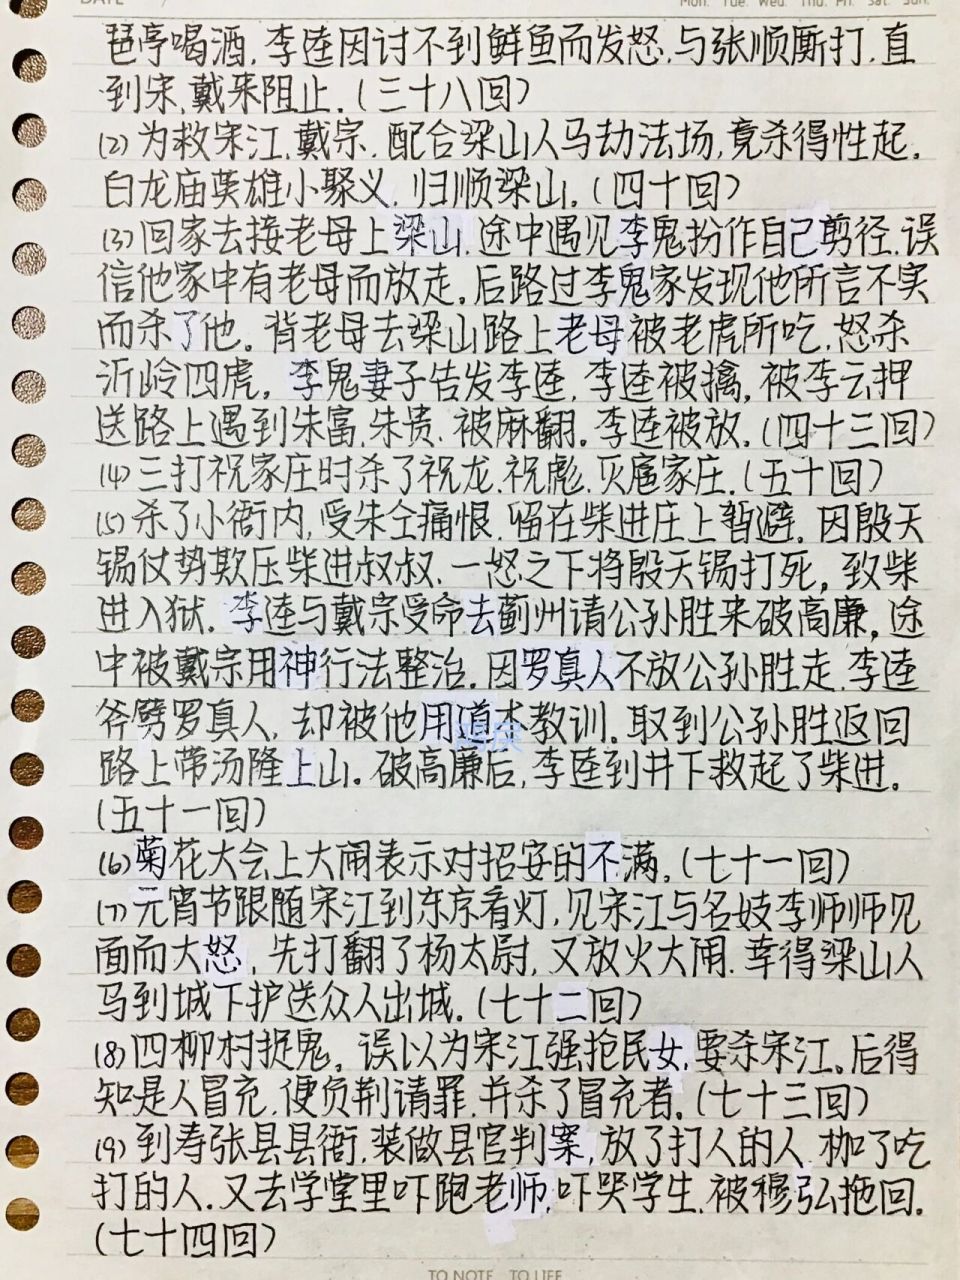 DATE
Mon. Tue. Wed. Thu. Fri. Sat. Sun.
琶亭喝酒,李逵因讨不到鲜鱼而发怒,与张顺厮打,直
到宋,戴来阻止.(三十八回)
(2)为救宋江,戴宗,配合梁山人马劫法场,竟杀得性起.
白龙庙英雄小聚义,归顺梁山.(四十回)
(3)回家去接老母上梁山,途中遇见李鬼扮作自己剪径,误
信他家中有老母而放走.后路过李鬼家发现他所言不实
而杀了他。背老母去梁山路上老母被老虎所吃,怒杀
沂岭四虎,李鬼妻子告发李逵,李逵被擒,被李云押
送路上遇到朱富,朱贵,被麻翻。李逵被放.(四十三回)
(4)三打祝家庄时杀了祝龙,祝彪,灭扈家庄.(五十回)
(5)杀了小衙内,受朱仝痛恨,留在柴进庄上暂避,因殷天
锡仗势欺压柴进叔叔,一怒之下将殷天锡打死,致柴
进入狱.李逵与戴宗受命去蓟州请公孙胜来破高廉,途
中被戴宗用神行法整治.因罗真人不放公孙胜走,李逵
斧劈罗真人,却被他用道术教训.取到公孙胜返回
路上带汤隆上山。破高廉后,李逵到井下救起了柴进.
(五十一回)
(6)菊花大会上大闹表示对招安的不满.(七十一回)
(7)元宵节跟随宋江到东京看灯,见宋江与名妓李师师见
面而大怒,先打翻了杨太尉,又放火大闹.幸得梁山人
马到城下护送众人出城.(七十二回)
(8)四柳村捉鬼,误以为宋江强抢民女,要杀宋江。后得
知是人冒充,便负荆请罪,并杀了冒充者.(七十三回)
(9)到寿张县县衙,装做县官判案,放了打人的人,枷了吃
打的人.又去学堂里吓跑老师,吓哭学生,被穆弘拖回.
(七十四回)
TO NOTE TO LIFE